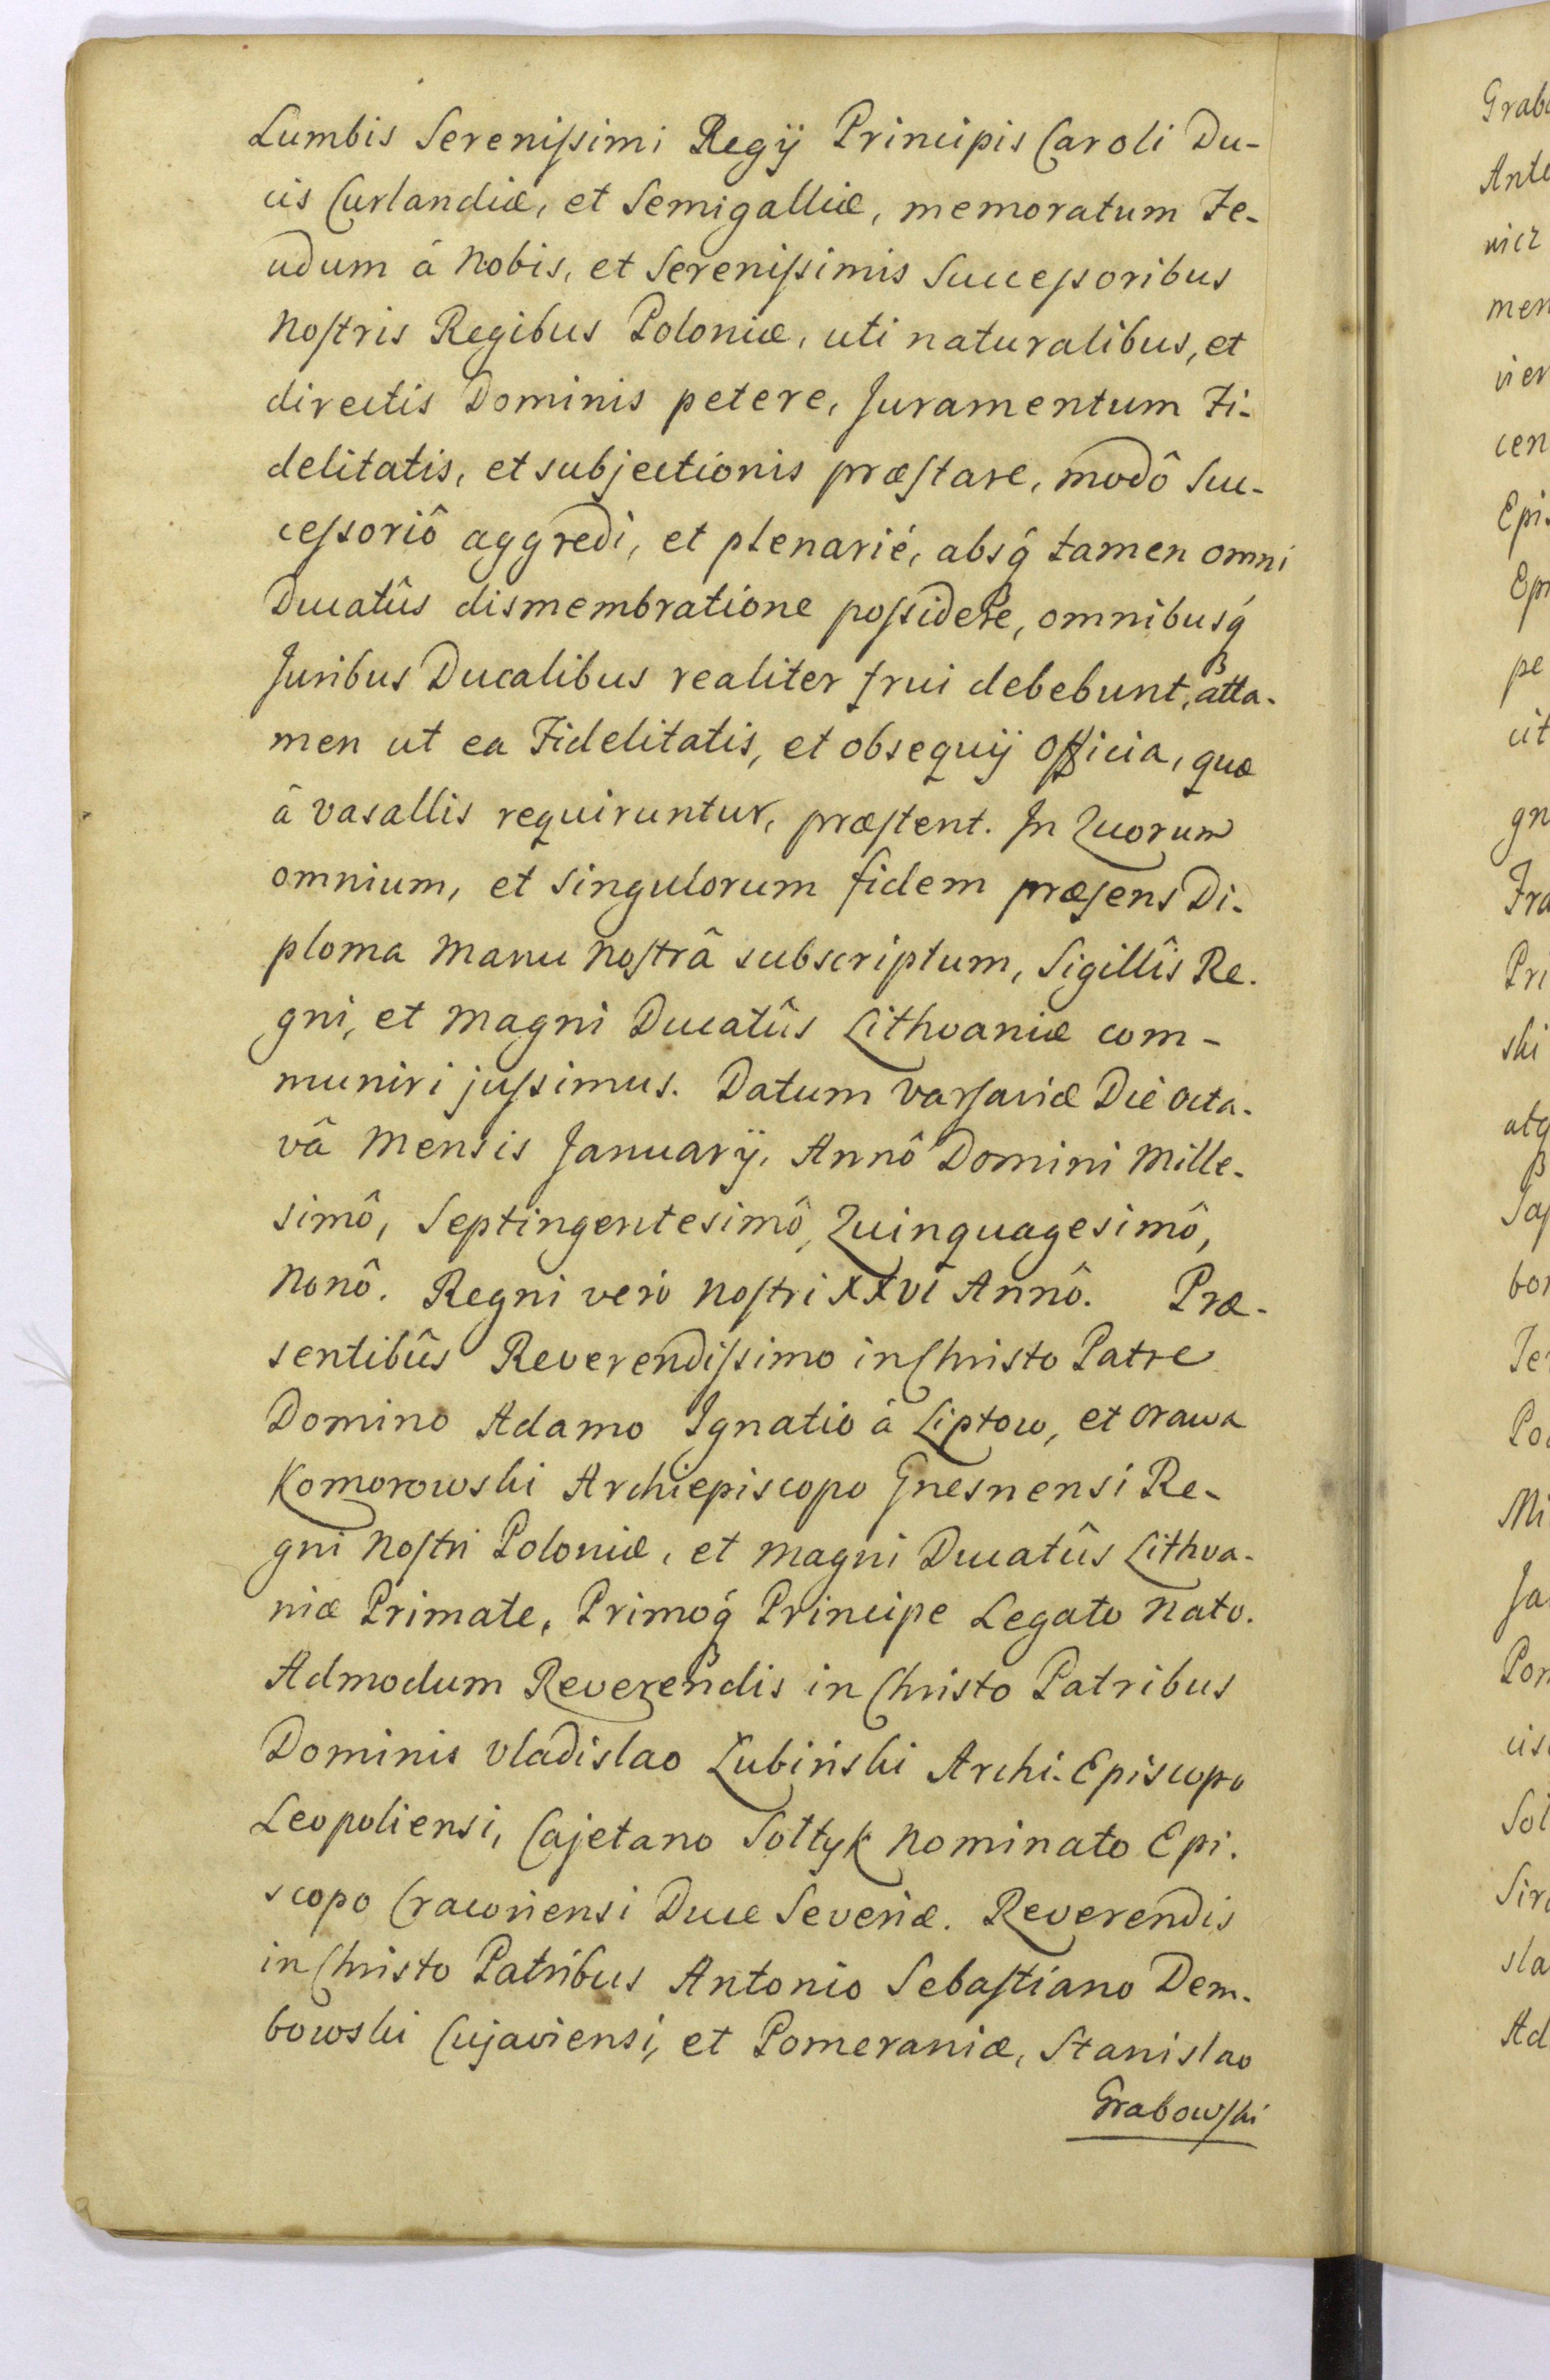 Lumbis Serenissimi Regÿ Principis Caroli Du-
cis Curlandiæ, et Semigalliæ, memoratum Fe-
udum á Nobis, et Serenissimis Successoribus
Nostris Regibus Poloniæ, uti naturalibus, et
directis Dominis petere, Juramentum Fi-
delitatis, et subjectionis præstare, modô Suc-
cessoriô aggredi, et plenarié, absq́ tamen omni
Ducatûs dismembratione possidere, omnibusq́
Juribus Ducalibus realiter frui debebunt, atta-
men ut ea Fidelitatis, et obsequÿ Officia, quæ
â Vasallis requiruntur, præstent. In Quorum
omnium, et singulorum fidem præsens Di-
ploma Manu Nostrâ subscriptum, Sigillîs Re-
gni, et Magni Ducatûs Lithvaniæ com-
muniri jussimus. Datum Varsaviæ Die Octa-
vâ Mensis Januarÿ, Annô Domini Mille-
simô, Septingentesimô, Quinquagesimô,
Nonô. Regni veró Nostri XXVI Annô. Præ-
sentibûs Reverendissimo in Christo Patre
Domino Adamo Ignatio á Liptow, et Orawa
Komorowski Archiepiscopo Gnesnensi Re-
gni Nostri Poloniæ, et Magni Ducatûs Lithva-
niæ Primate, Primoq́ Principe Legato Nato.
Admodum Reverendis in Christo Patribus
Dominis Vladislao Łubiński Archi-Episcopo
Leopoliensi, Cajetano Sołtyk Nominato Epi-
scopo Cracoviensi Duce Severiæ. Reverendis
in Christo Patribus Antonio Sebastiano Dem-
bowski Cujaviensi, et Pomeraniæ, Stanislao
Grabowski